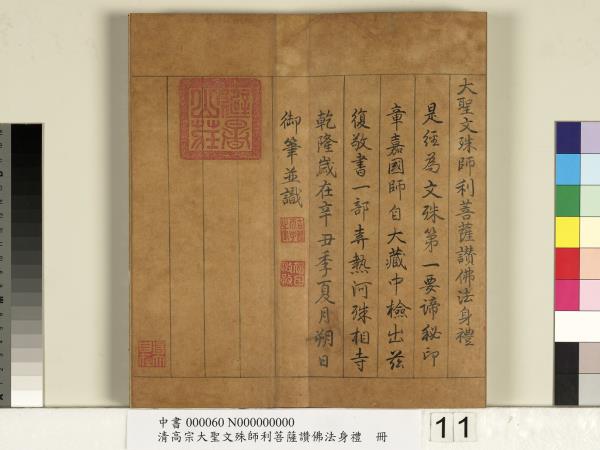 大聖文殊師利菩薩讚佛法身禮
是經為文殊第一要諦秘印
章嘉國師自大藏中檢出茲
復敬書一部弆熱河殊相寺
乾隆歲在辛丑季夏月朔日
御筆並識
避暑山莊
中書 000060 N000000000
清高宗大聖文殊師利菩薩讚佛法身禮 冊
11